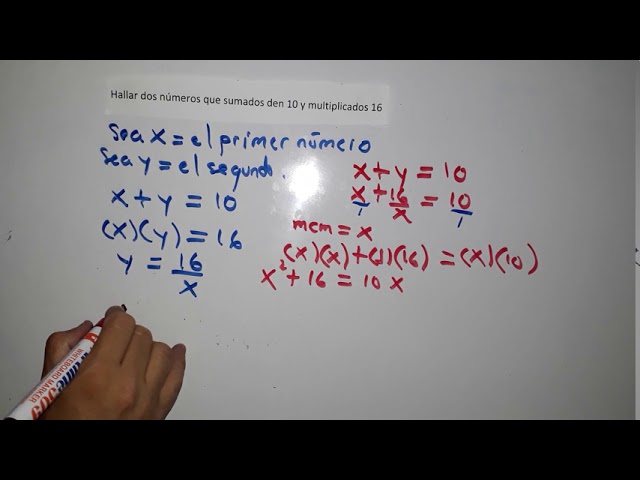 Hallar dos números que sumados den 10 y multiplicados 16
Sea X = el primer número
Sea Y = el segundo.
x + y = 10
(x)(y) = 16
y = 16/x
x + y = 10
x/1 + 16/x = 10/1
mcm = x
(x)(x) + (1)(16) = (x)(10)
x² + 16 = 10x
WHITEBOARD MARKER